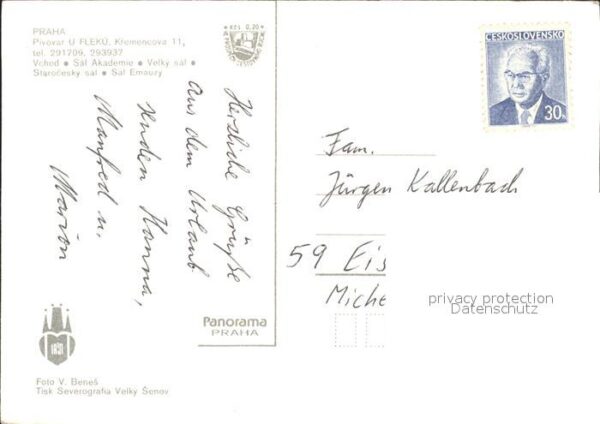 PRAHA
Pivovar U FLEKŮ, Křemencova 11,
tel. 291209, 293937
Vchod • Sál Akademie • Velký sál •
Staročeský sál • Sál Emauzy
Herzliche Grüße
aus dem Urlaub
senden Hanna,
Manfred u.
Marion
ČESKOSLOVENSKO
30h
Fam.
Jürgen Kallenbach
59 Eis
Miche
privacy protection
Datenschutz
Panorama
PRAHA
Foto V. Beneš
Tisk Severografia Velký Šenov